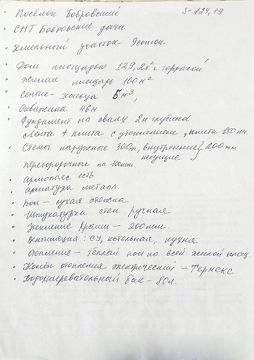 Посёлок Бобровский S-124,19
СНТ Бобровские дачи
Земельный участок 9соток
Дом площадью 129,2 с террасой
Жилая площадь 100 м²
Септик-кольца 5м³
Скважина 46м
Фундамент на сваях 2м глубина
Лента + плита с утеплением, плита 150 мм
Стены наружные 300мм, внутренние (200мм
несущие)
перегородочные на 100мм
Армопояс есть
арматура металл.
Пол - сухая стяжка
Штукатурка стен ручная
Утепление крыши - 200мм
Вентиляция: СУ, котельная, кухня
Отопление - Тёплый пол по всей жилой площ.
Котёл отопления электрический - Термокс
Водонагревательный бак - 80л.